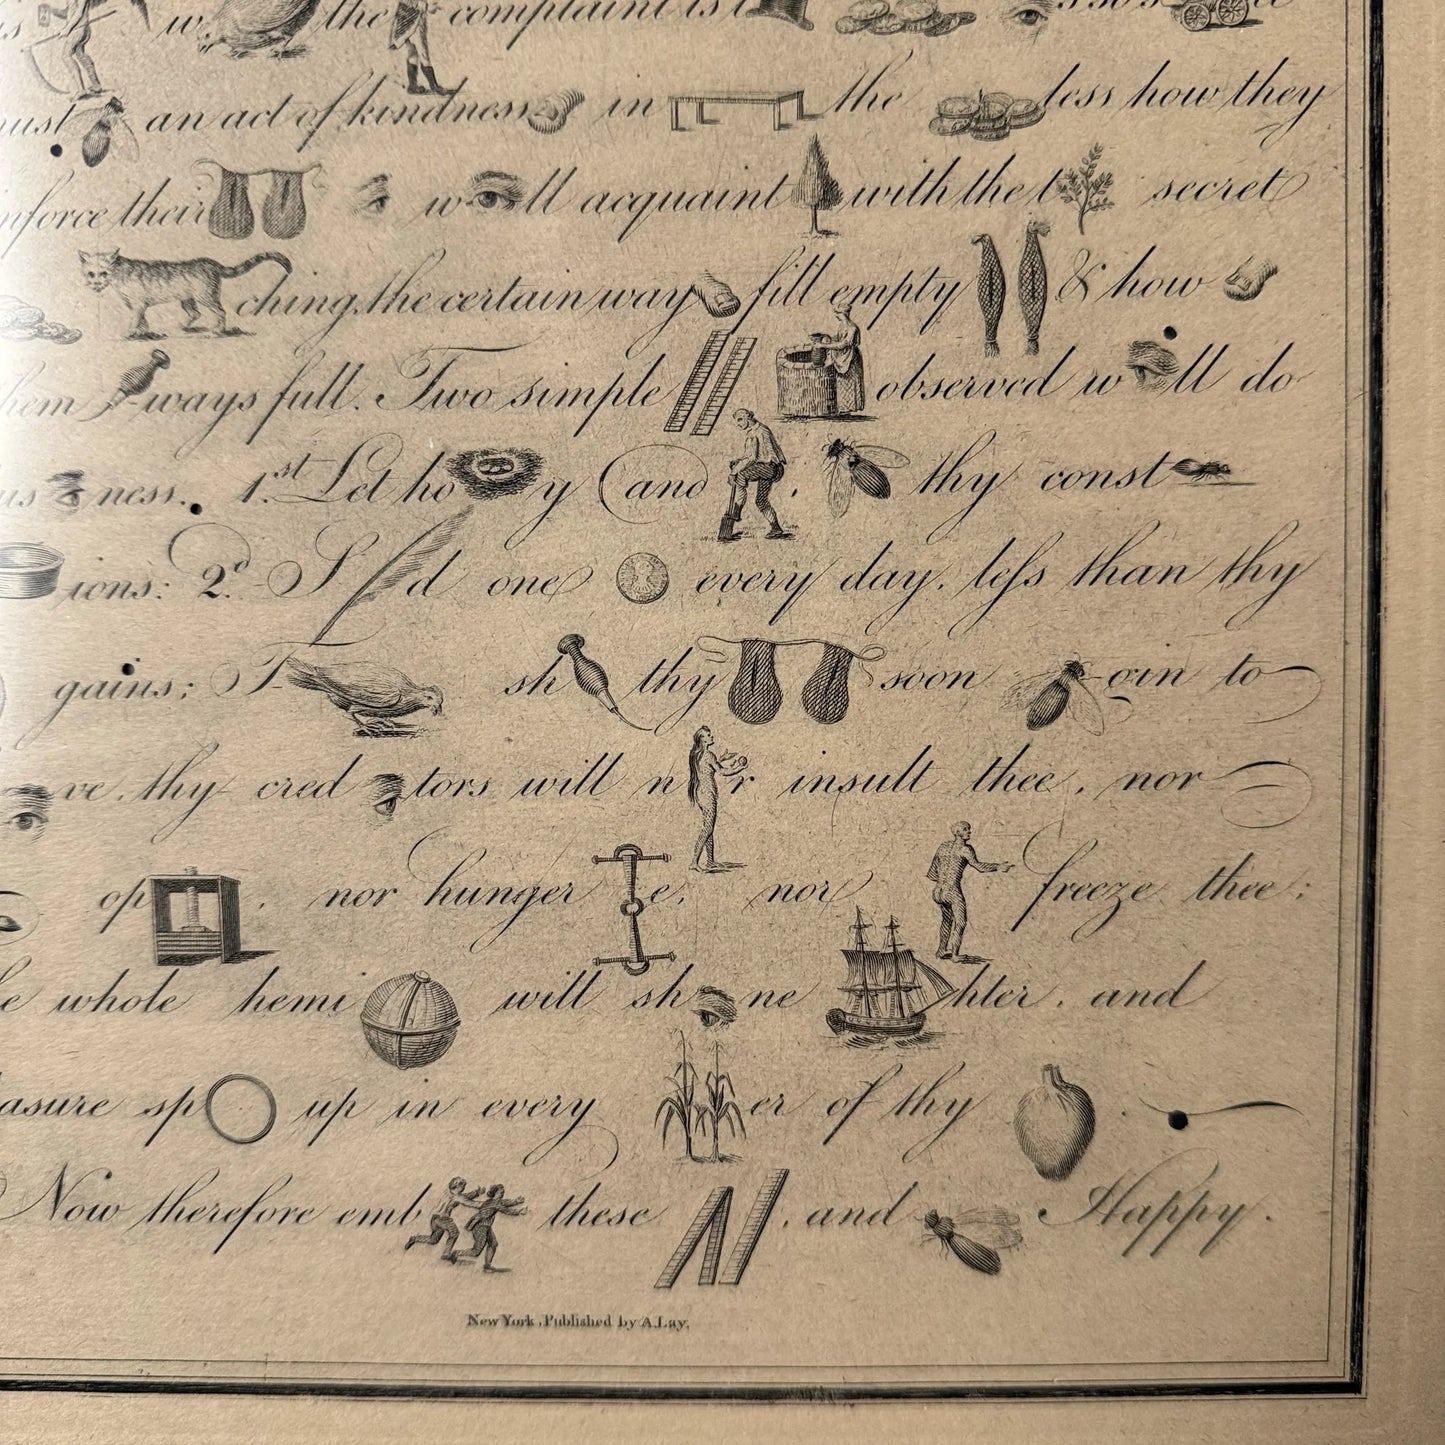 w the complaint is t
ust an act of kindness in the less how they
nforce their w ll acquaint with the t secret
ching, the certain way fill empty & how
hem ways full. Two simple observed w ll do
us ness. 1.st Let ho y and , thy const
ions: 2.d S d one every day, less than thy
gains; T sh thy soon gin to
ve, thy cred tors will n r insult thee, nor
op , nor hunger e, nor freeze thee;
e whole hemi will sh ne hter, and
asure sp up in every er of thy .
Now therefore emb these , and Happy.
New York, Published by A. Lay.